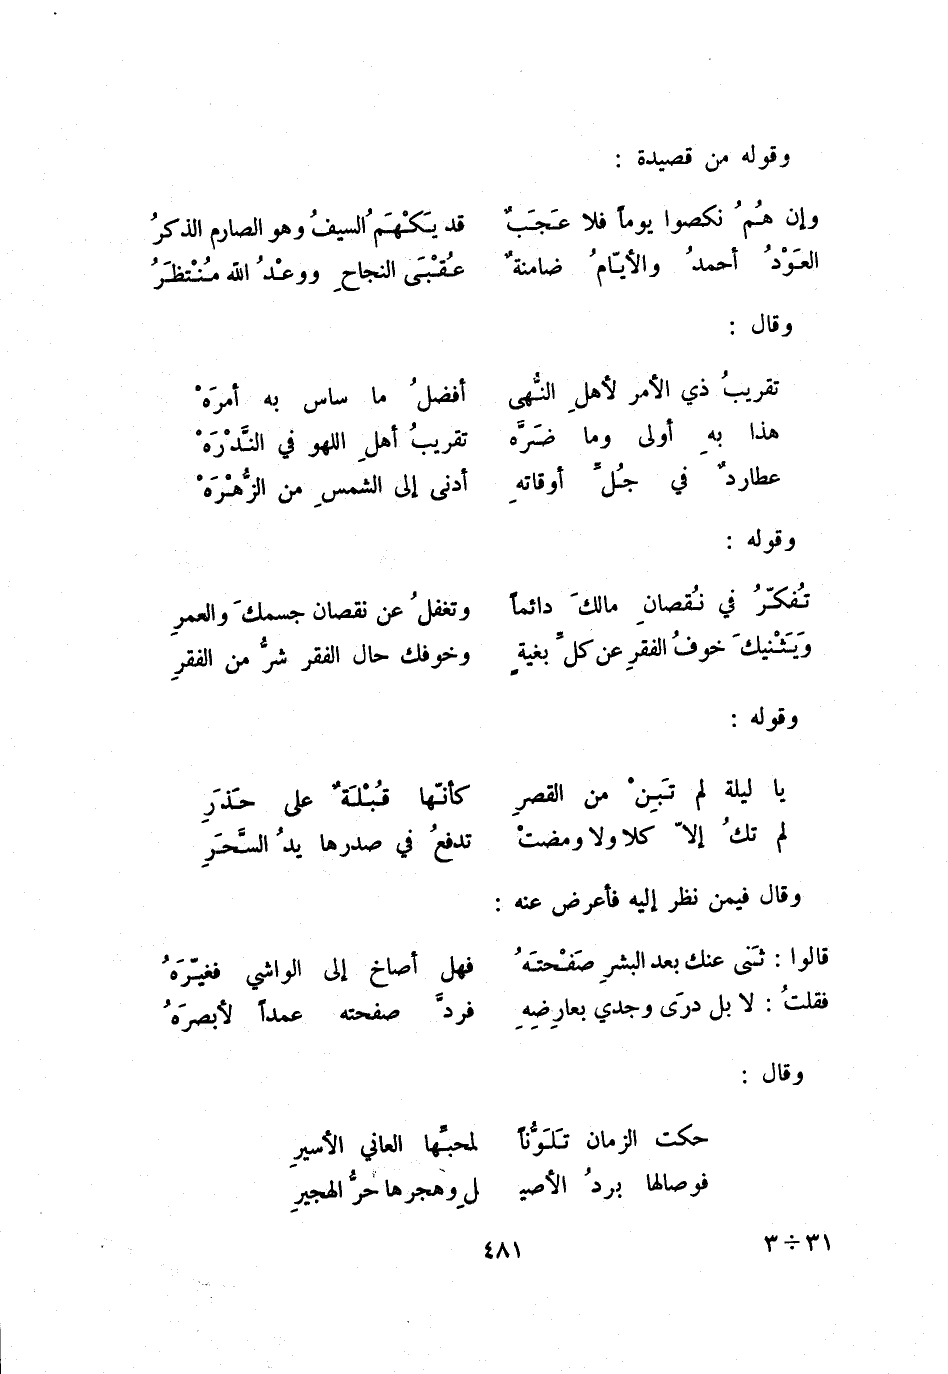 وقوله من قصيدة :
وإن هُمُ نكصوا يوماً فلا عَجَبٌ قد يَكْهَمُ السيفُ وهو الصارم الذكرُ
العَوْدُ أحمدُ والأيّامُ ضامنةٌ عُقْبَى النجاحِ ووعْدُ الله مُنْتظَرُ
وقال :
تقريبُ ذي الأمر لأهلِ النُّهى أفضلُ ما ساس به أمرَهْ
هذا بهِ أولى وما ضَرَّه تقريبُ أهلِ اللهو في النَّدْرَهْ
عطاردٌ في جُلِّ أوقاتهِ أدنى إلى الشمسِ من الزُّهْرَهْ
وقوله :
تُفكّرُ في نُقصانِ مالكَ دائماً وتغفلُ عن نقصان جسمكَ والعمرِ
وَيَثْنيكَ خوفُ الفقرِ عن كلِّ بغيةٍ وخوفك حال الفقر شرٌّ من الفقرِ
وقوله :
يا ليلة لم تَبِنْ من القصرِ كأنّها قُبْلَةٌ على حَذَرِ
لم تكُ إلاّ كلا ولا ومضتْ تدفعُ في صدرها يدُ السَّحَرِ
وقال فيمن نظر إليه فأعرض عنه :
قالوا : ثَنى عنك بعد البشرِ صَفْحتَهُ فهل أصاخ إلى الواشي فغيّرَهُ
فقلتُ : لا بل درَى وجدي بعارِضِهِ فردَّ صفحته عمداً لأبصرَهُ
وقال :
حكت الزمان تَلَوُّناً لمحبِّها العاني الأسيرِ
فوصالها بردُ الأصيـ لِ وهجرها حرُّ الهجيرِ
٣١ ÷ ٣
٤٨١